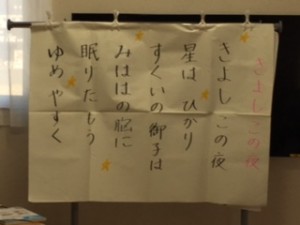 きよし この夜
きよし この夜
星は ひかり
すくいの 御子は
みははの 胸に
眠りたもう
ゆめ やすく